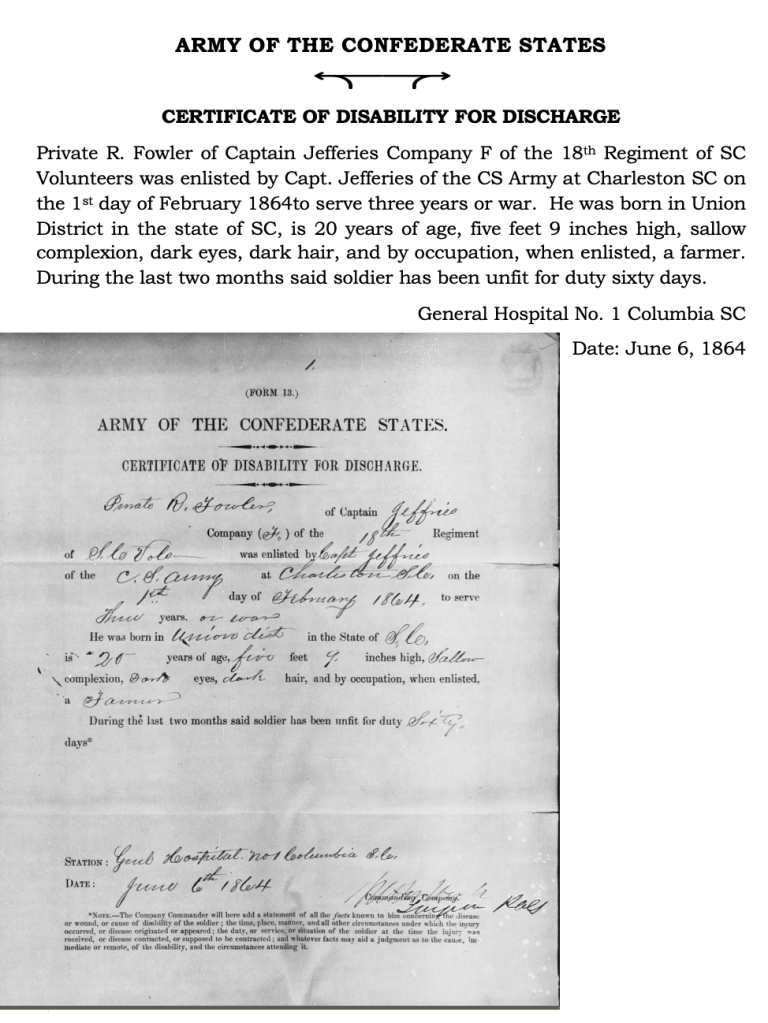 ARMY OF THE CONFEDERATE STATES
CERTIFICATE OF DISABILITY FOR DISCHARGE
Private R. Fowler of Captain Jefferies Company F of the 18th Regiment of SC
Volunteers was enlisted by Capt. Jefferies of the CS Army at Charleston SC on
the 1st day of February 1864to serve three years or war. He was born in Union
District in the state of SC, is 20 years of age, five feet 9 inches high, sallow
complexion, dark eyes, dark hair, and by occupation, when enlisted, a farmer.
During the last two months said soldier has been unfit for duty sixty days.
General Hospital No. 1 Columbia SC
Date: June 6, 1864
1.
(FORM 13.)
ARMY OF THE CONFEDERATE STATES.
CERTIFICATE OF DISABILITY FOR DISCHARGE.
Private R. Fowler, of Captain Jeffries
Company (F.) of the 18th Regiment
of S.C. Vols was enlisted by Capt Jeffries
of the C. S. Army at Charleston S.C. on the
1st day of February 1864. to serve
Three years. or war
He was born in Union dist in the State of S.C.
is 20 years of age, five feet 9. inches high, Sallow
complexion, Dark eyes, dark hair, and by occupation, when enlisted,
a Farmer
During the last two months said soldier has been unfit for duty Sixty,
days*
STATION: Genl Hospital. No 1 Columbia S.C.
DATE: June 6th 1864
Commanding Company.
*NOTE.—The Company Commander will here add a statement of all the facts known to him concerning the disease
or wound, or cause of disability of the soldier; the time, place, manner, and all other circumstances under which the injury
occurred, or disease originated or appeared; the duty, or service, or situation of the soldier at the time the injury was
received, or disease contracted, or supposed to be contracted; and whatever facts may aid a judgment as to the cause, im-
mediate or remote, of the disability, and the circumstances attending it.